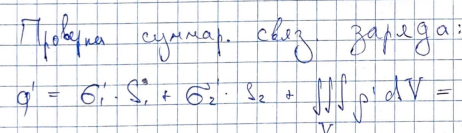 Проверка суммар. связ. заряда:
q' = σ₁' · S₁ + σ₂' · S₂ + ∭ ρ' dV =
V